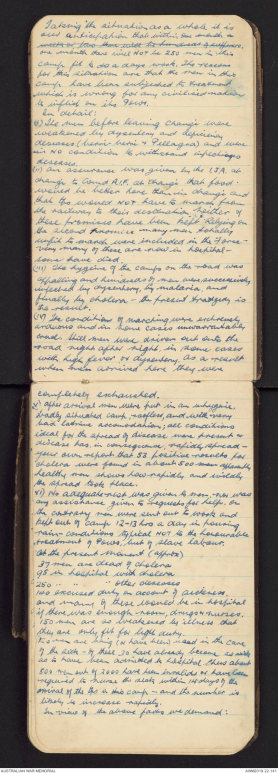 Taking the situation as a whole it is
our anticipation that within one month
one month there will NOT be 250 men in this
camp fit to do a days work. The reasons
for this situation are that the men in this
camp have been subjected to treatment
which is wrong for any civilised nation
to inflict on its Powrs.
In detail:
(i) The men before leaving Changi were
weakened by dysentery and deficiency
diseases (beri-beri & Pellagra) and were
in NO condition to withstand infectious
diseases.
(ii) an assurance was given by the I.J.A. at
Changi to Comd A.I.F. at Changi that food
would be better here than in Changi and
that the would NOT have to march from
the railways to their destination. Neither of
these promises have been kept. Relying on
the second promise many men totally
unfit to march were included in the Force -
very many of these are now in hospital -
some have died.
(iii) The hygiene of the camps on the road was
appalling and hundreds of men were successively
infected by dysentery, by malaria and
finally by cholera - the present tragedy is
the result.
(iv) The conditions of marching were extremely
arduous and in some cases unwarrantably
harsh that men were driven out onto the
road night after night in some cases
with high fever or dysentery. As a result
when men arrived here they were
completely exhausted.
v) After arrival men were put in an unhygienic
badly situated camp, roofless, and with very
bad latrine accomodation; all conditions
ideal for the spread of disease were present &
disease has in consequence rapidly spread -
your own report that 53 positive results for
cholera were found in about 500 men apparently
healthy men shows how rapidly and widely
the spread took place.
vi) No adequate rest was given to men nor was
any assistance given to requests for help. On
the contrary men were sent out to work and
kept out of camp 12-13 hrs a day in pouring
rainy conditions typical NOT to the honourable
treatment of Powrs, but of slave labour.
At the present moment (approx)
37 men are dead of cholera
95 in hospital with cholera
250 " " " other diseases
100 excused duty on account of sickness
and many of these would be in hospital
if there was enough room, drugs & nurses.
150 men are so weakened by illness that
they are only fit for light duty.
150 men are being (& have been) used in the care
of the sick - of these 30 have already become so sick
as to have been admitted to hospital. thus about
800 men out of 2000 have been invalids or have been
required to nurse the sick within 14 days of the
arrival of the in this camp - and the number is
likely to increase rapidly.
In view of the above facts we demand:
AUSTRALIAN WAR MEMORIAL